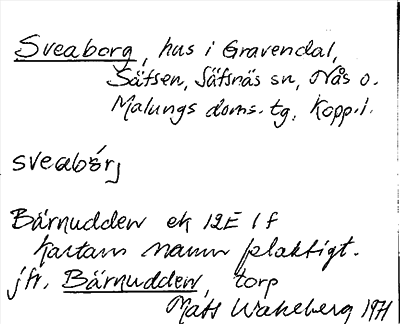 Sveaborg, hus i Gravendal,
Säfsen, Säfsnäs sn, Nås o.
Malungs doms.tg, Kopp.l.
sveabórj
Bärnudden ek 12E 1f
kartans namn plaktigt.
jfr. Bärnudden, torp
Mats Wakeberg 1971